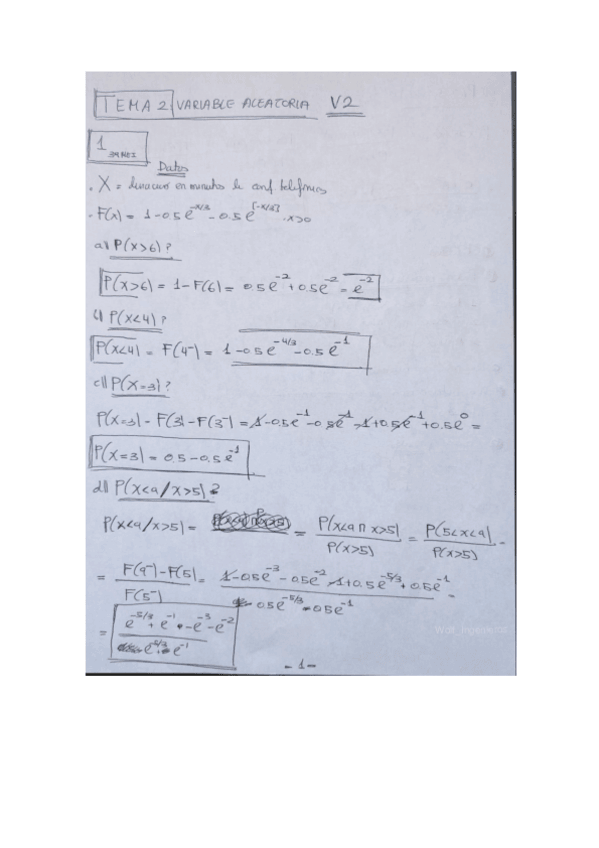 TEMA 2 VARIABLE ALEATORIA V2
1
Datos
. X = duracion en minutos de conf telefonicas
- F(x) = 1 - 0.5 e^{-x/3} - 0.5 e^{[-x/3]} . x>0
a) P(x>6)?
P(x>6) = 1-F(6) = 0.5e^{-2} + 0.5e^{-2} = e^{-2}
P(x<4)?
P(x<4) = F(4^-) = 1 - 0.5 e^{-4/3} - 0.5 e^{-1}
c) P(X=3)?
P(x=3) - F(3) - F(3^-) = 1 - 0.5e^{-1} - 0.5e^{-1} - 1 + 0.5e^{-1} + 0.5e^0 =
P(x=3) = 0.5 - 0.5 e^{-1}
d) P(x<9/x>5)?
P(x<9/x>5) = = P(x<9 ∩ x>5) / P(x>5) = P(5<x<9) / P(x>5) -
= F(9^-) - F(5) / F(5^-) = 1 - 0.5e^{-3} - 0.5e^{-2} - 1 + 0.5e^{-5/3} + 0.5e^{-1} / 0.5e^{-5/3} 0.5e^{-1} -
= e^{-5/3} + e^{-1} - e^{-3} - e^{-2} / e^{-5/3} e^{-1}
- 1 -